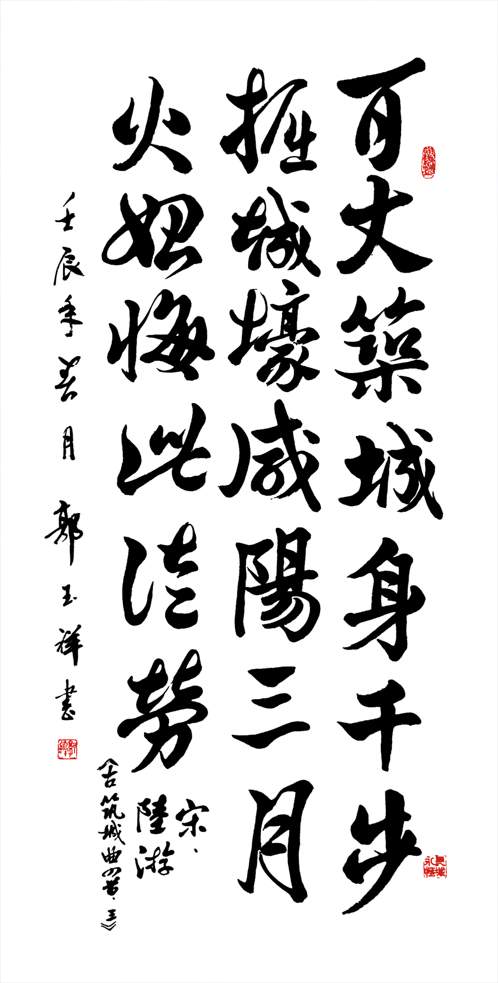 百丈築城身千步
掘城壕咸陽三月
火始悔此徒勞
宋·陸游
《古筑城曲四首·三》
壬辰年月 郭玉祥書